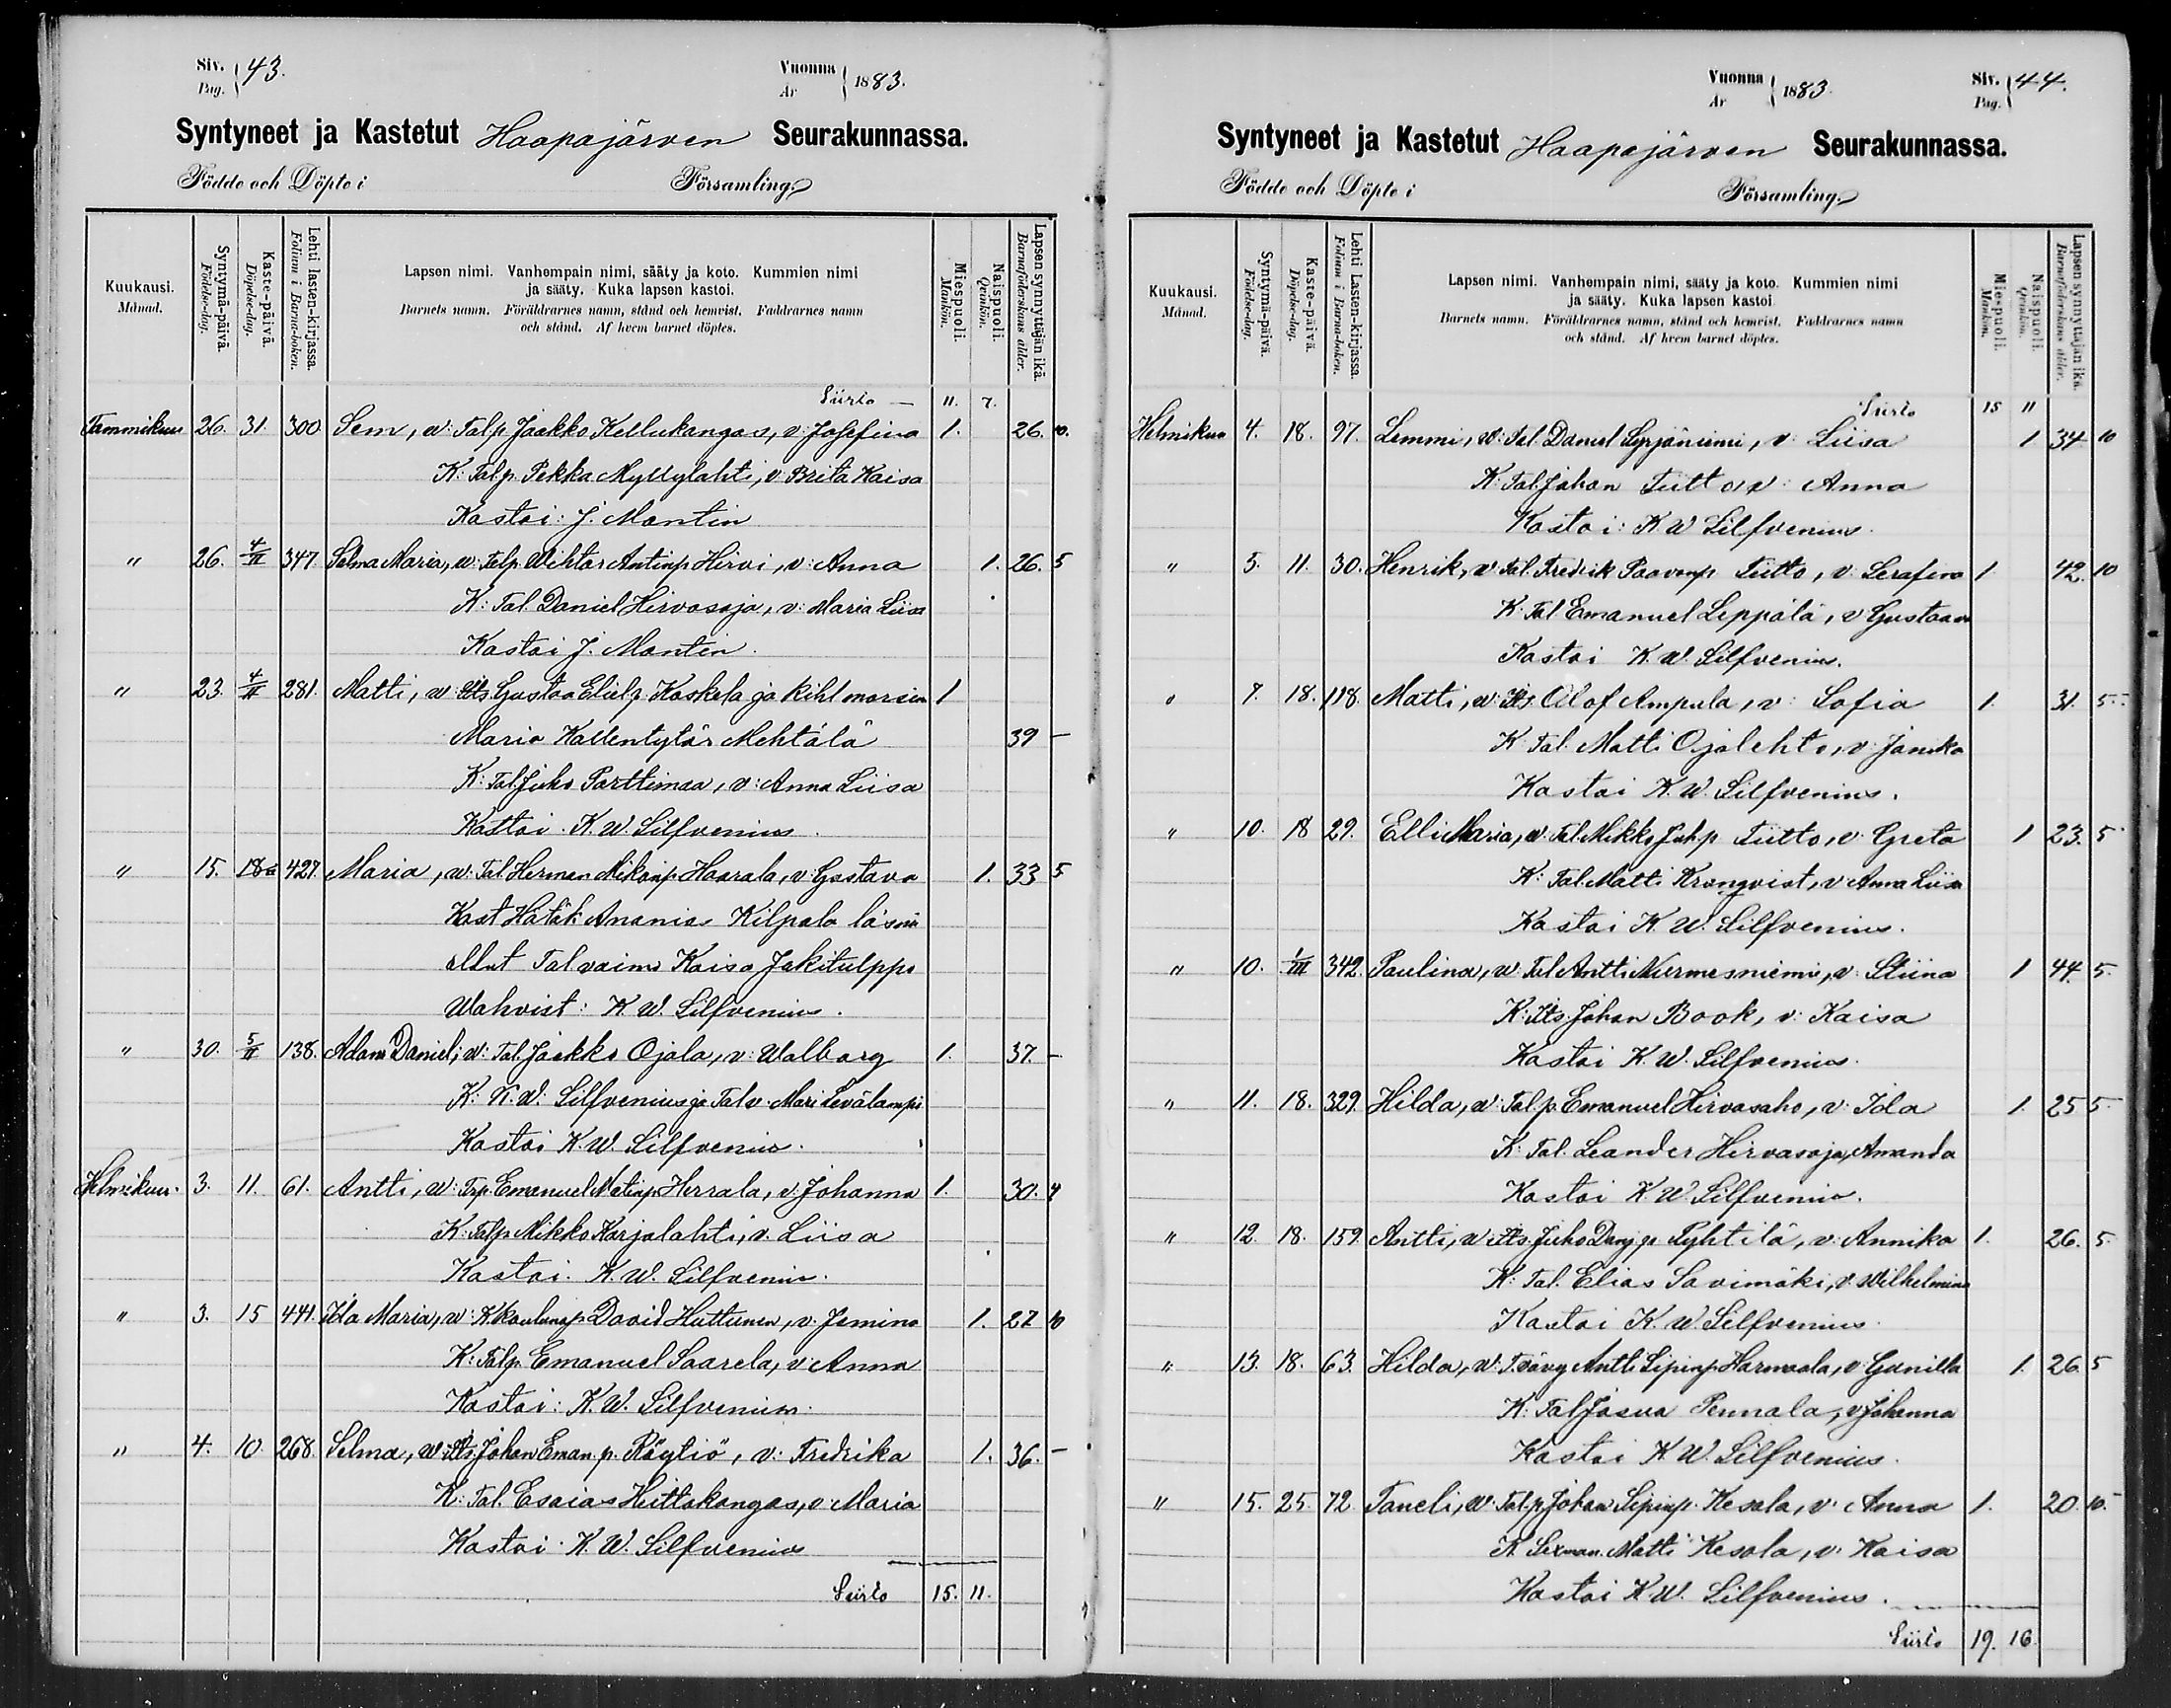 Siv. 43.
Pag.
Vuonna 1883.
År
Syntyneet ja Kastetut Haapajärven Seurakunnassa.
Födde och Döpte i Församling.
Kuukausi.
Månad.
Syntymä-päivä.
Födelse-dag.
Kaste-päivä.
Döpelse-dag.
Lehti lasten-kirjassa.
Folium i Barna-boken.
Lapsen nimi. Vanhempain nimi, sääty ja koto. Kummien nimi
ja sääty. Kuka lapsen kastoi.
Barnets namn. Föräldrarnes namn, stånd och hemvist. Faddrarnes namn
och stånd. Af hvem barnet döptes.
Miespuoli.
Mankön.
Naispuoli.
Qvinkön.
Lapsen synnyttäjän ikä.
Barnaföderskans ålder.
Siirto — 11. 7.
Tammikuu 26. 31. 300 Sem, w: Talp Jaakko Kellukangas, v: Josefina 1. 26. 10.
K: Talp. Pekka Myllylahti, v: Brita Kaisa
Kastoi: J. Montin
" 26. 4/II 347. Selma Maria, w: Talp. Wihtor Antinp Hirvi, v: Anna 1. 26. 5
K: Tal. Daniel Hirvasoja, v: Maria Liisa
Kastoi J. Montin.
" 23. 4/II 281. Matti, w: Its Gustaa Elielp. Koskela ja kihl morsian 1
Maria Kallentytär Mehtälä 39 —
K: Tal. Juho Parttimaa, v: Anna Liisa
Kastoi. K. W. Silfvenius.
" 15. 18 427. Maria, w: Tal Herman Mikonp Haarala, v: Gustava 1. 33 5
Kast Hätäk Ananias Kilpala läsnä
ollut Talvaimo Kaisa Jakitulppo
Wahvist: K. W. Silfvenius.
" 30. 5/II 138. Adam Daniel, w: Tal. Jaakko Ojala, v: Walborg 1. 37. —
K: K. W. Silfvenius ja Tal v. Mari Levälampi
Kastoi K. W. Silfvenius.
Helmikuu. 3. 11. 61. Antti, w: Trp. Emanuel Matinp Herrala, v: Johanna 1. 30. 4
K: Talp. Mikko Karjalahti, v. Liisa
Kastoi. K. W. Silfvenius.
" 3. 15 441. Ida Maria, w: K koulunop David Huttunen, v. Jemina 1. 27 10
K: Talp. Emanuel Saarela, v: Anna
Kastoi: K. W. Silfvenius.
" 4. 10. 268. Selma, w: Its Johan Eman. p. Röytiö, v: Fredrika 1. 36. —
K: Tal. Esaias Hiittokangas, v: Maria
Kastoi K. W. Silfvenius
Siirto 15. 11.
Vuonna 1883.
År
Siv. 44.
Pag.
Syntyneet ja Kastetut Haapajärven Seurakunnassa.
Födde och Döpte i Församling.
Kuukausi.
Månad.
Syntymä-päivä.
Födelse-dag.
Kaste-päivä.
Döpelse-dag.
Lehti Lasten-kirjassa.
Folium i Barna-boken.
Lapsen nimi. Vanhempain nimi, sääty ja koto. Kummien nimi
ja sääty. Kuka lapsen kastoi.
Barnets namn. Föräldrarnes namn, stånd och hemvist. Faddrarnes namn
och stånd. Af hvem barnet döptes.
Miespuoli.
Mankön.
Naispuoli.
Qvinkön.
Lapsen synnyttäjän ikä.
Barnaföderskans ålder.
Siirto 15 11
Helmikuu 4. 18. 97. Lemmi, w: Tal. Daniel Syrjäniemi, v: Liisa 1 34. 10
K: Tal. Johan Tiitto, v: Anna
Kastoi: K W Silfvenius.
" 5. 11. 30. Henrik, w: Tal. Fredrik Paavonp Tiitto, v: Serafina 1 42. 10
K. Tal. Emanuel Leppälä, v Gustaava
Kastoi K. W. Silfvenius.
" 7. 18. 118. Matti, w: Its. Olof Ampula, v: Sofia 1. 31. 5.
K: Tal. Matti Ojalehto, v: Jannika
Kastoi K. W. Silfvenius.
" 10. 18 29. Elli Maria, w: Tal. Mikko Juhp Tiitto, v: Greta 1 23. 5
K: Tal. Matti Kronqvist, v: Anna Liisa
Kastoi K. W. Silfvenius.
" 10. 1/III 342. Paulina, w: Tal Antti Nurmesniemi, v: Stiina 1 44. 5.
K: Its. Johan Book, v: Kaisa
Kastoi K. W. Silfvenius.
" 11. 18. 329. Hilda, w: Talp. Emanuel Hirvasaho, v: Ida 1. 25 5
K. Tal. Leander Hirvasoja, Amanda
Kastoi K. W. Silfvenius.
" 12. 18. 159. Antti, w: Its. Juho Danj p Pyhtilä, v: Annika 1. 26. 5.
K: Tal. Elias Savimäki, v. Wilhelmina
Kastoi K. W. Silfvenius.
" 13. 18. 63. Hilda, w: T.vävy Antti Sipinp Harmaala, v: Gunilla 1. 26. 5
K: Tal Josua Pennala, v: Johanna
Kastoi K W. Silfvenius.
" 15. 25. 72. Taneli, w: Talp Johan Sipinp. Kesola, v: Anna 1. 20. 10.
K Sexman. Matti Kesola, v: Kaisa
Kastoi K W. Silfvenius.
Siirto 19. 16